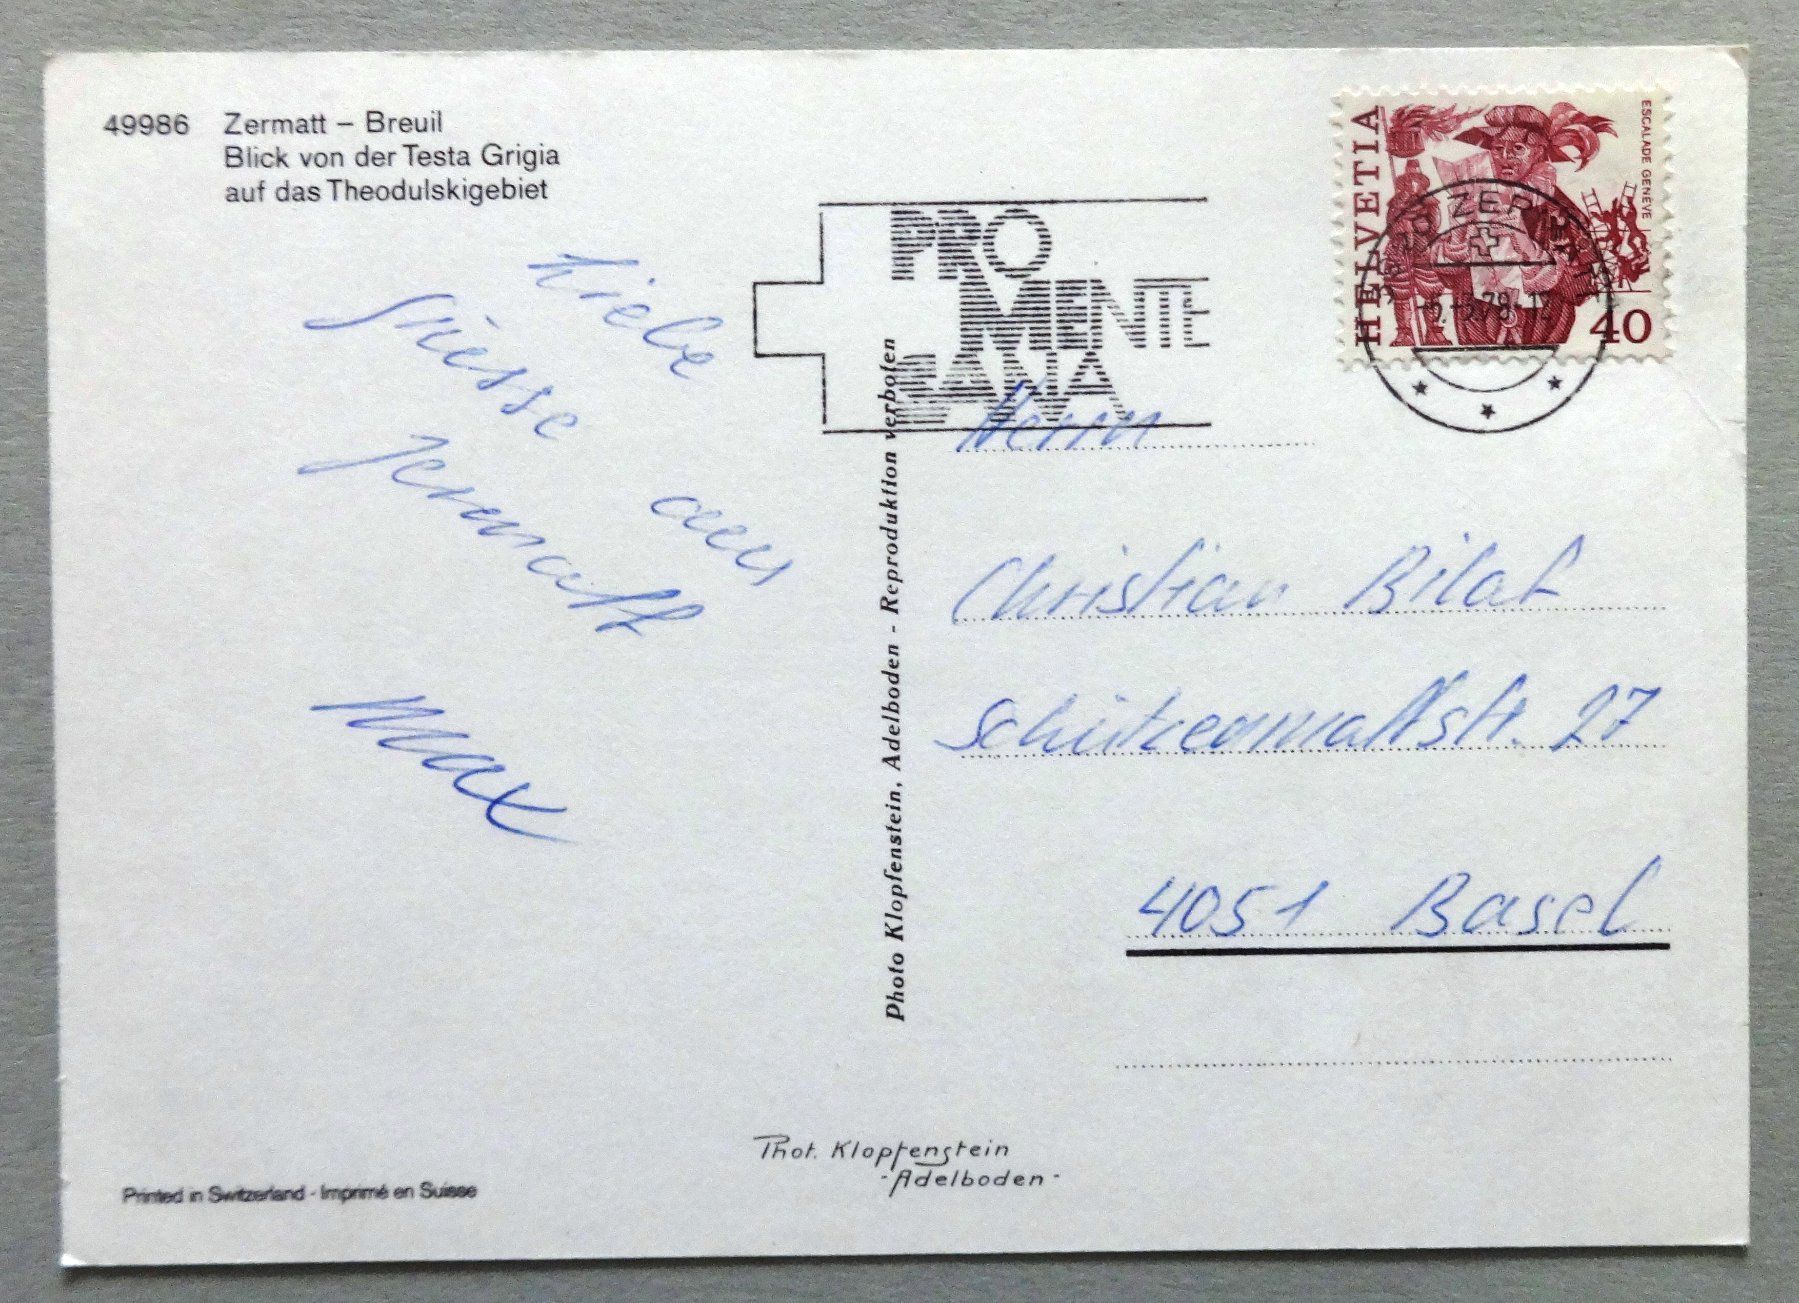 49986 Zermatt – Breuil
Blick von der Testa Grigia
auf das Theodulskigebiet
Liebe
Grüsse aus
Zermatt
Max
Printed in Switzerland - Imprimé en Suisse
Photo Klopfenstein, Adelboden - Reproduktion verboten
Phot. Klopfenstein
- Adelboden -
PRO
MENTE
SANA
HELVETIA
ESCALADE GENÈVE
40
ZERMATT
Herrn
Christian Bilat
Schützenmattstr. 27
4051 Basel